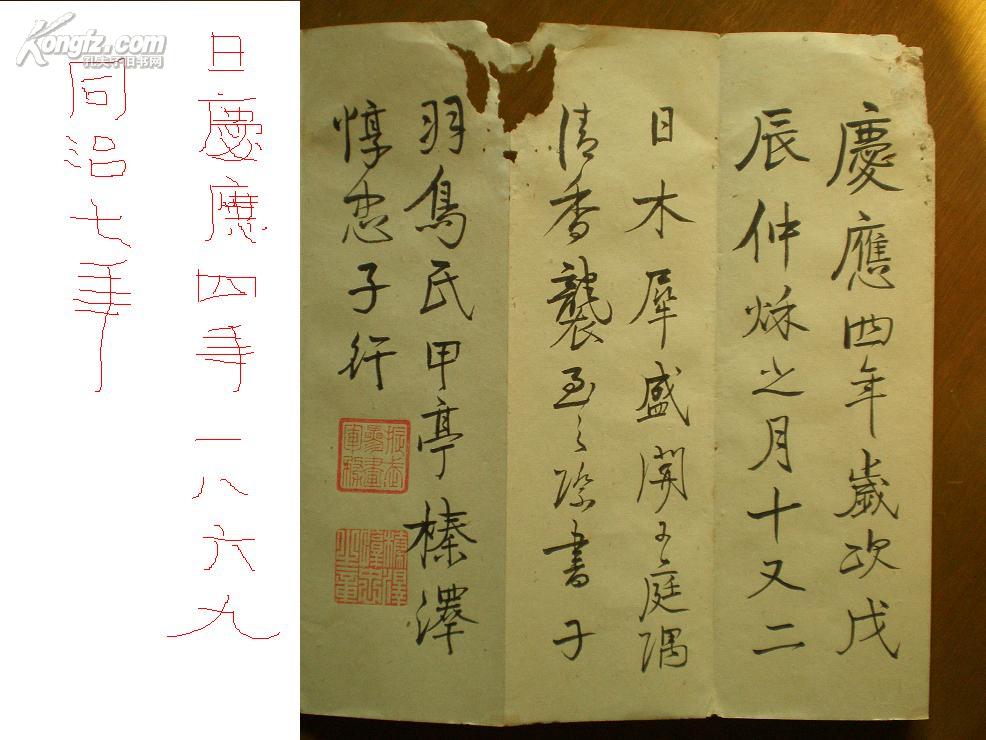 Kongfz.com
孔夫子旧书网
日慶應四年一八六九
同治七年
慶應四年歲次戊
辰仲烁之月十又二
日木犀盛開於庭隅
清香襲至之際書于
羽鳥氏甲亭榛澤
惇忠子行